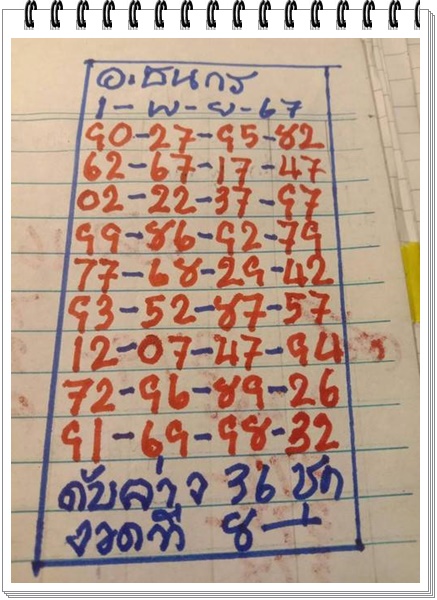 อ.ธนกร
1-พ-ย-67
90-27-95-82
62-67-17-47
02-22-37-97
99-86-92-79
77-68-29-42
93-52-87-57
12-07-47-94
72-96-89-26
91-69-98-32
ดับล่าง 36 ชุด
งวดที่ 8